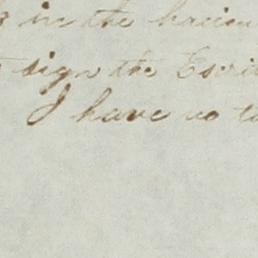 in the
sign the
I have no to